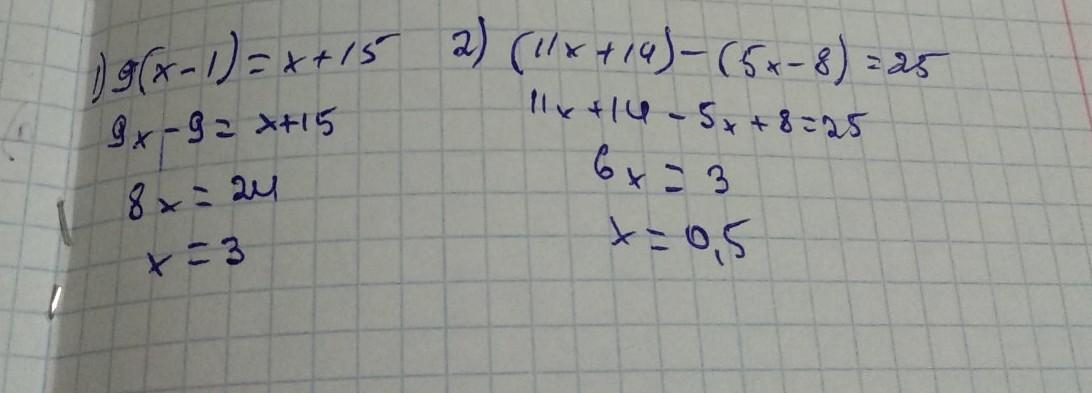 1) 9(x-1) = x+15
9x-9 = x+15
8x = 24
x = 3
2) (11x+14)-(5x-8) = 25
11x+14-5x+8=25
6x = 3
x = 0,5